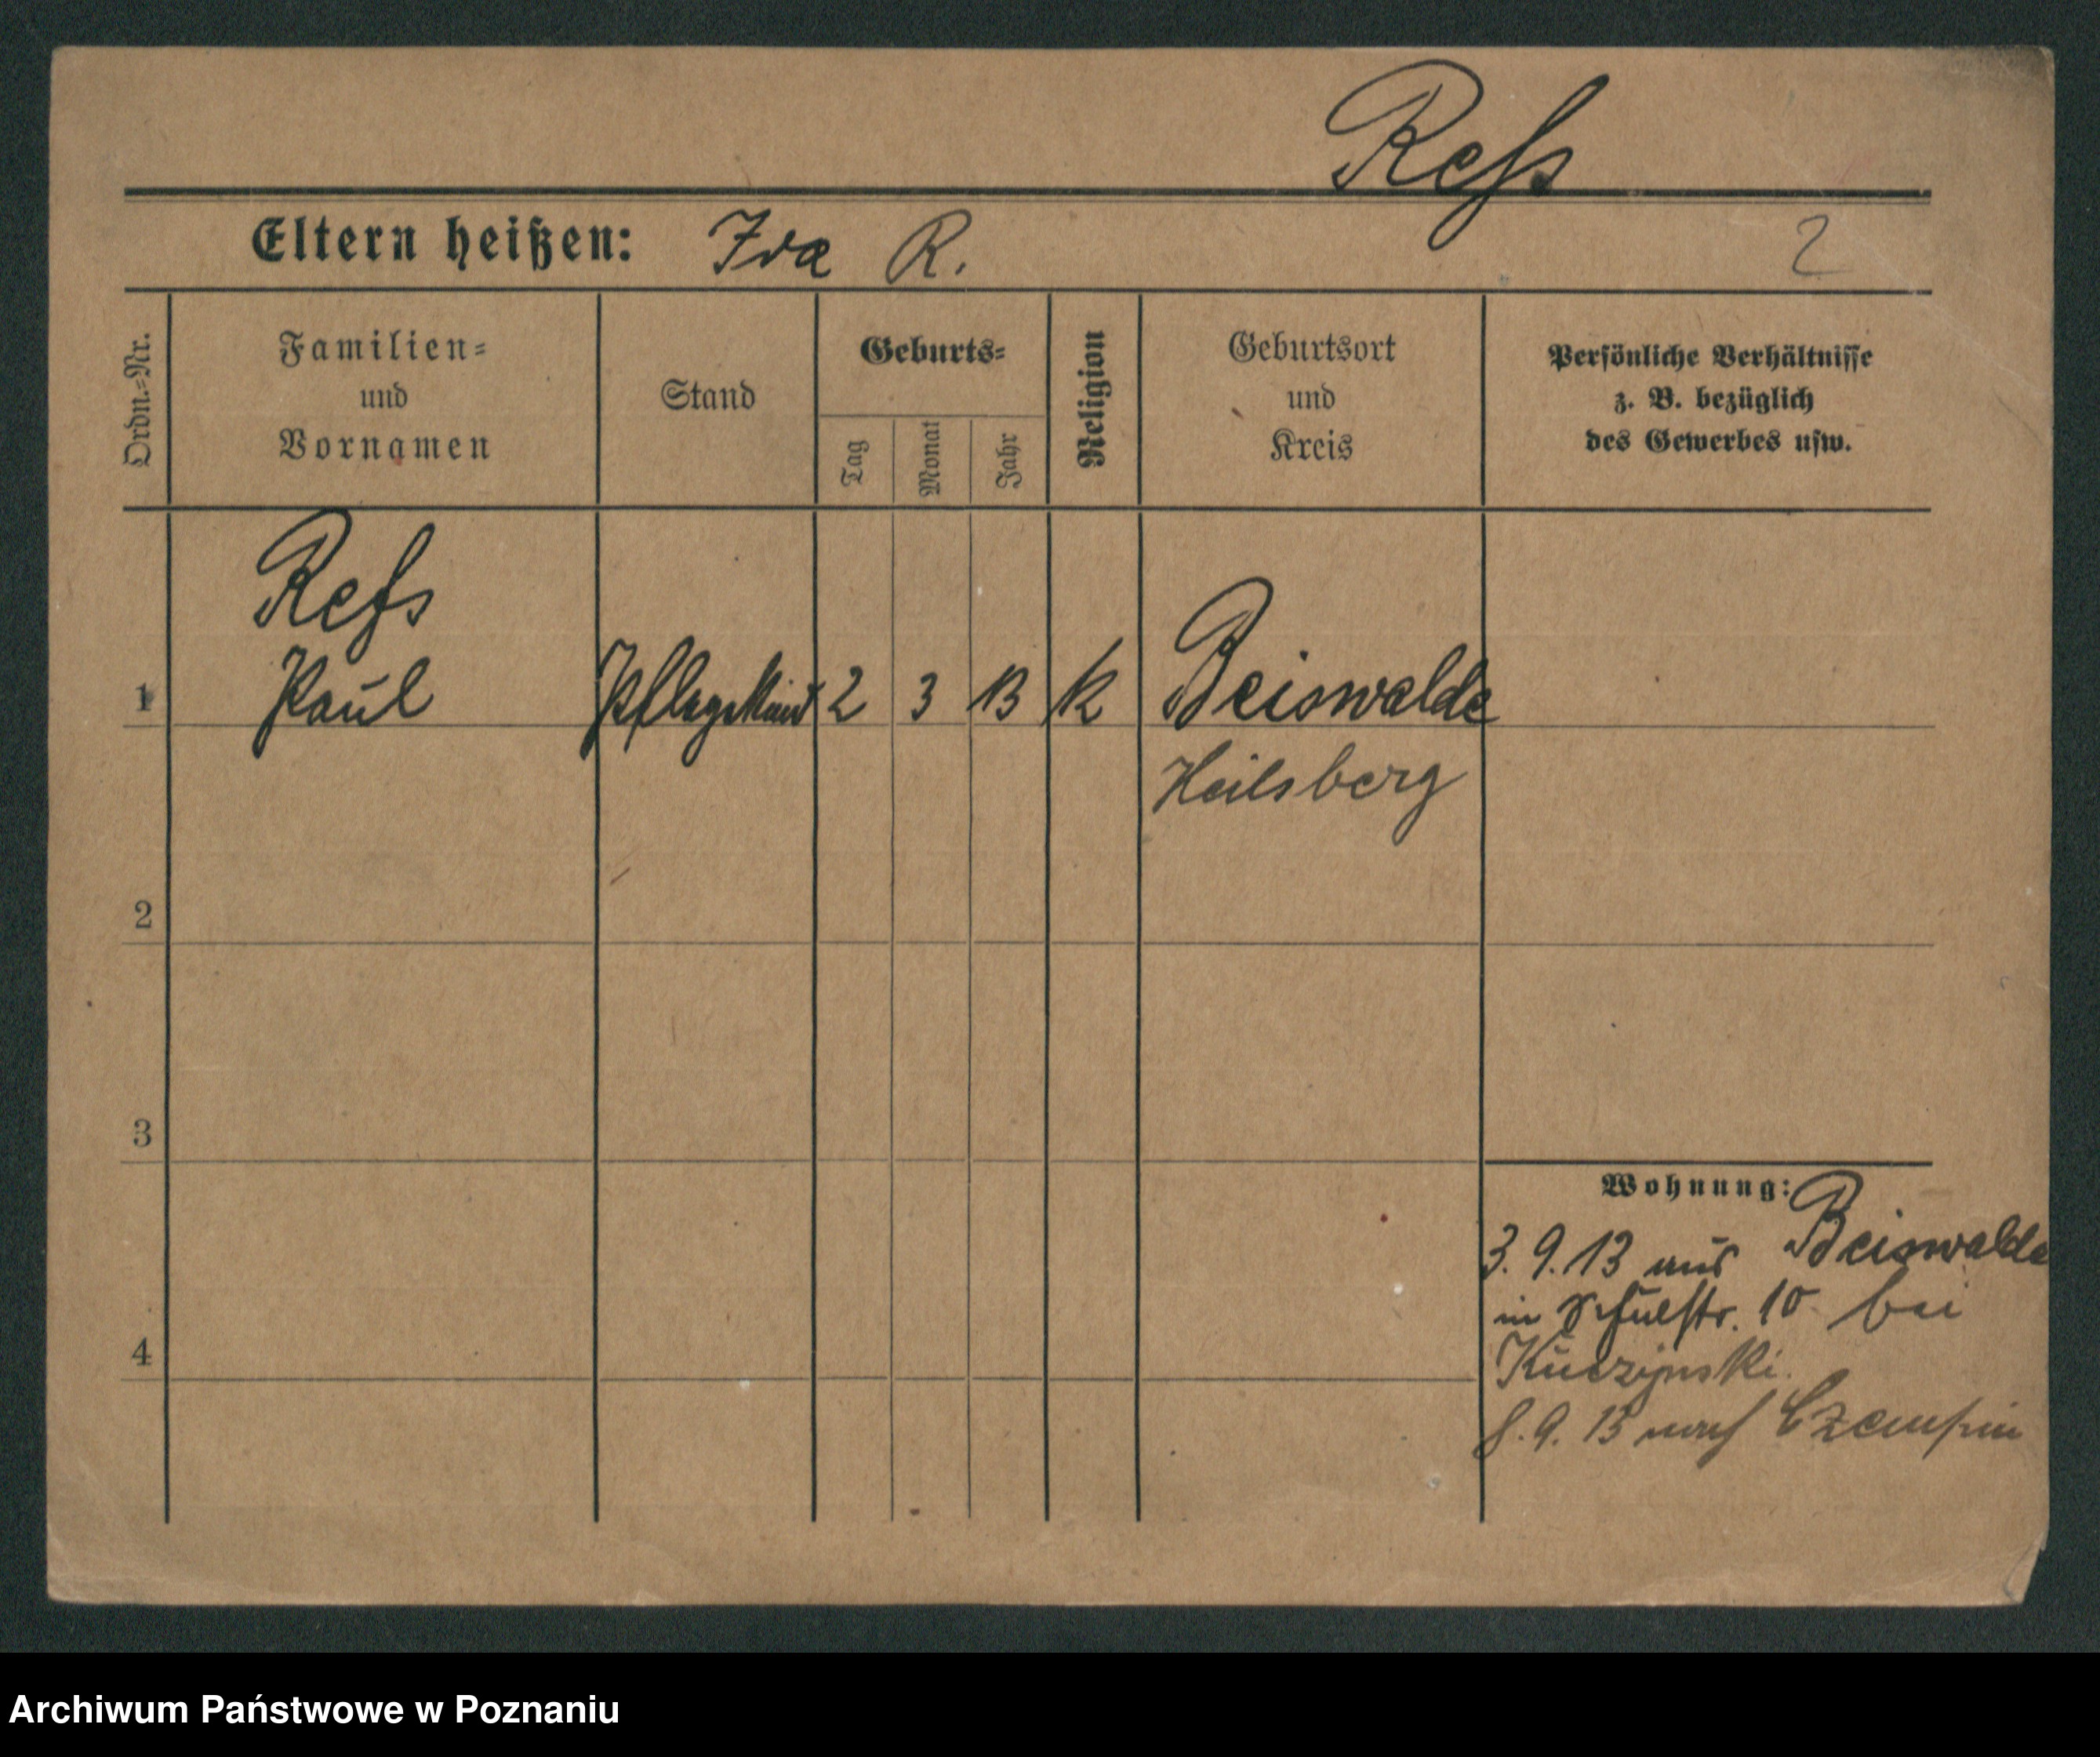 Reſs
Eltern heißen: Ida R.
2
Ordn.=Nr.
Familien=
und
Vornamen
Stand
Geburts=
Tag
Monat
Jahr
Religion
Geburtsort
und
Kreis
Persönliche Verhältnisse
z. B. bezüglich
des Gewerbes usw.
Reſs
1 Paul Pflegekind 2 3 13 k Beiswalde
Heilsberg
2
3
Wohnung:
3. 9. 13 aus Beiswalde
in Schulstr. 10 bei
4
Kuczynski.
8. 9. 13 nach Czempin
Archiwum Państwowe w Poznaniu